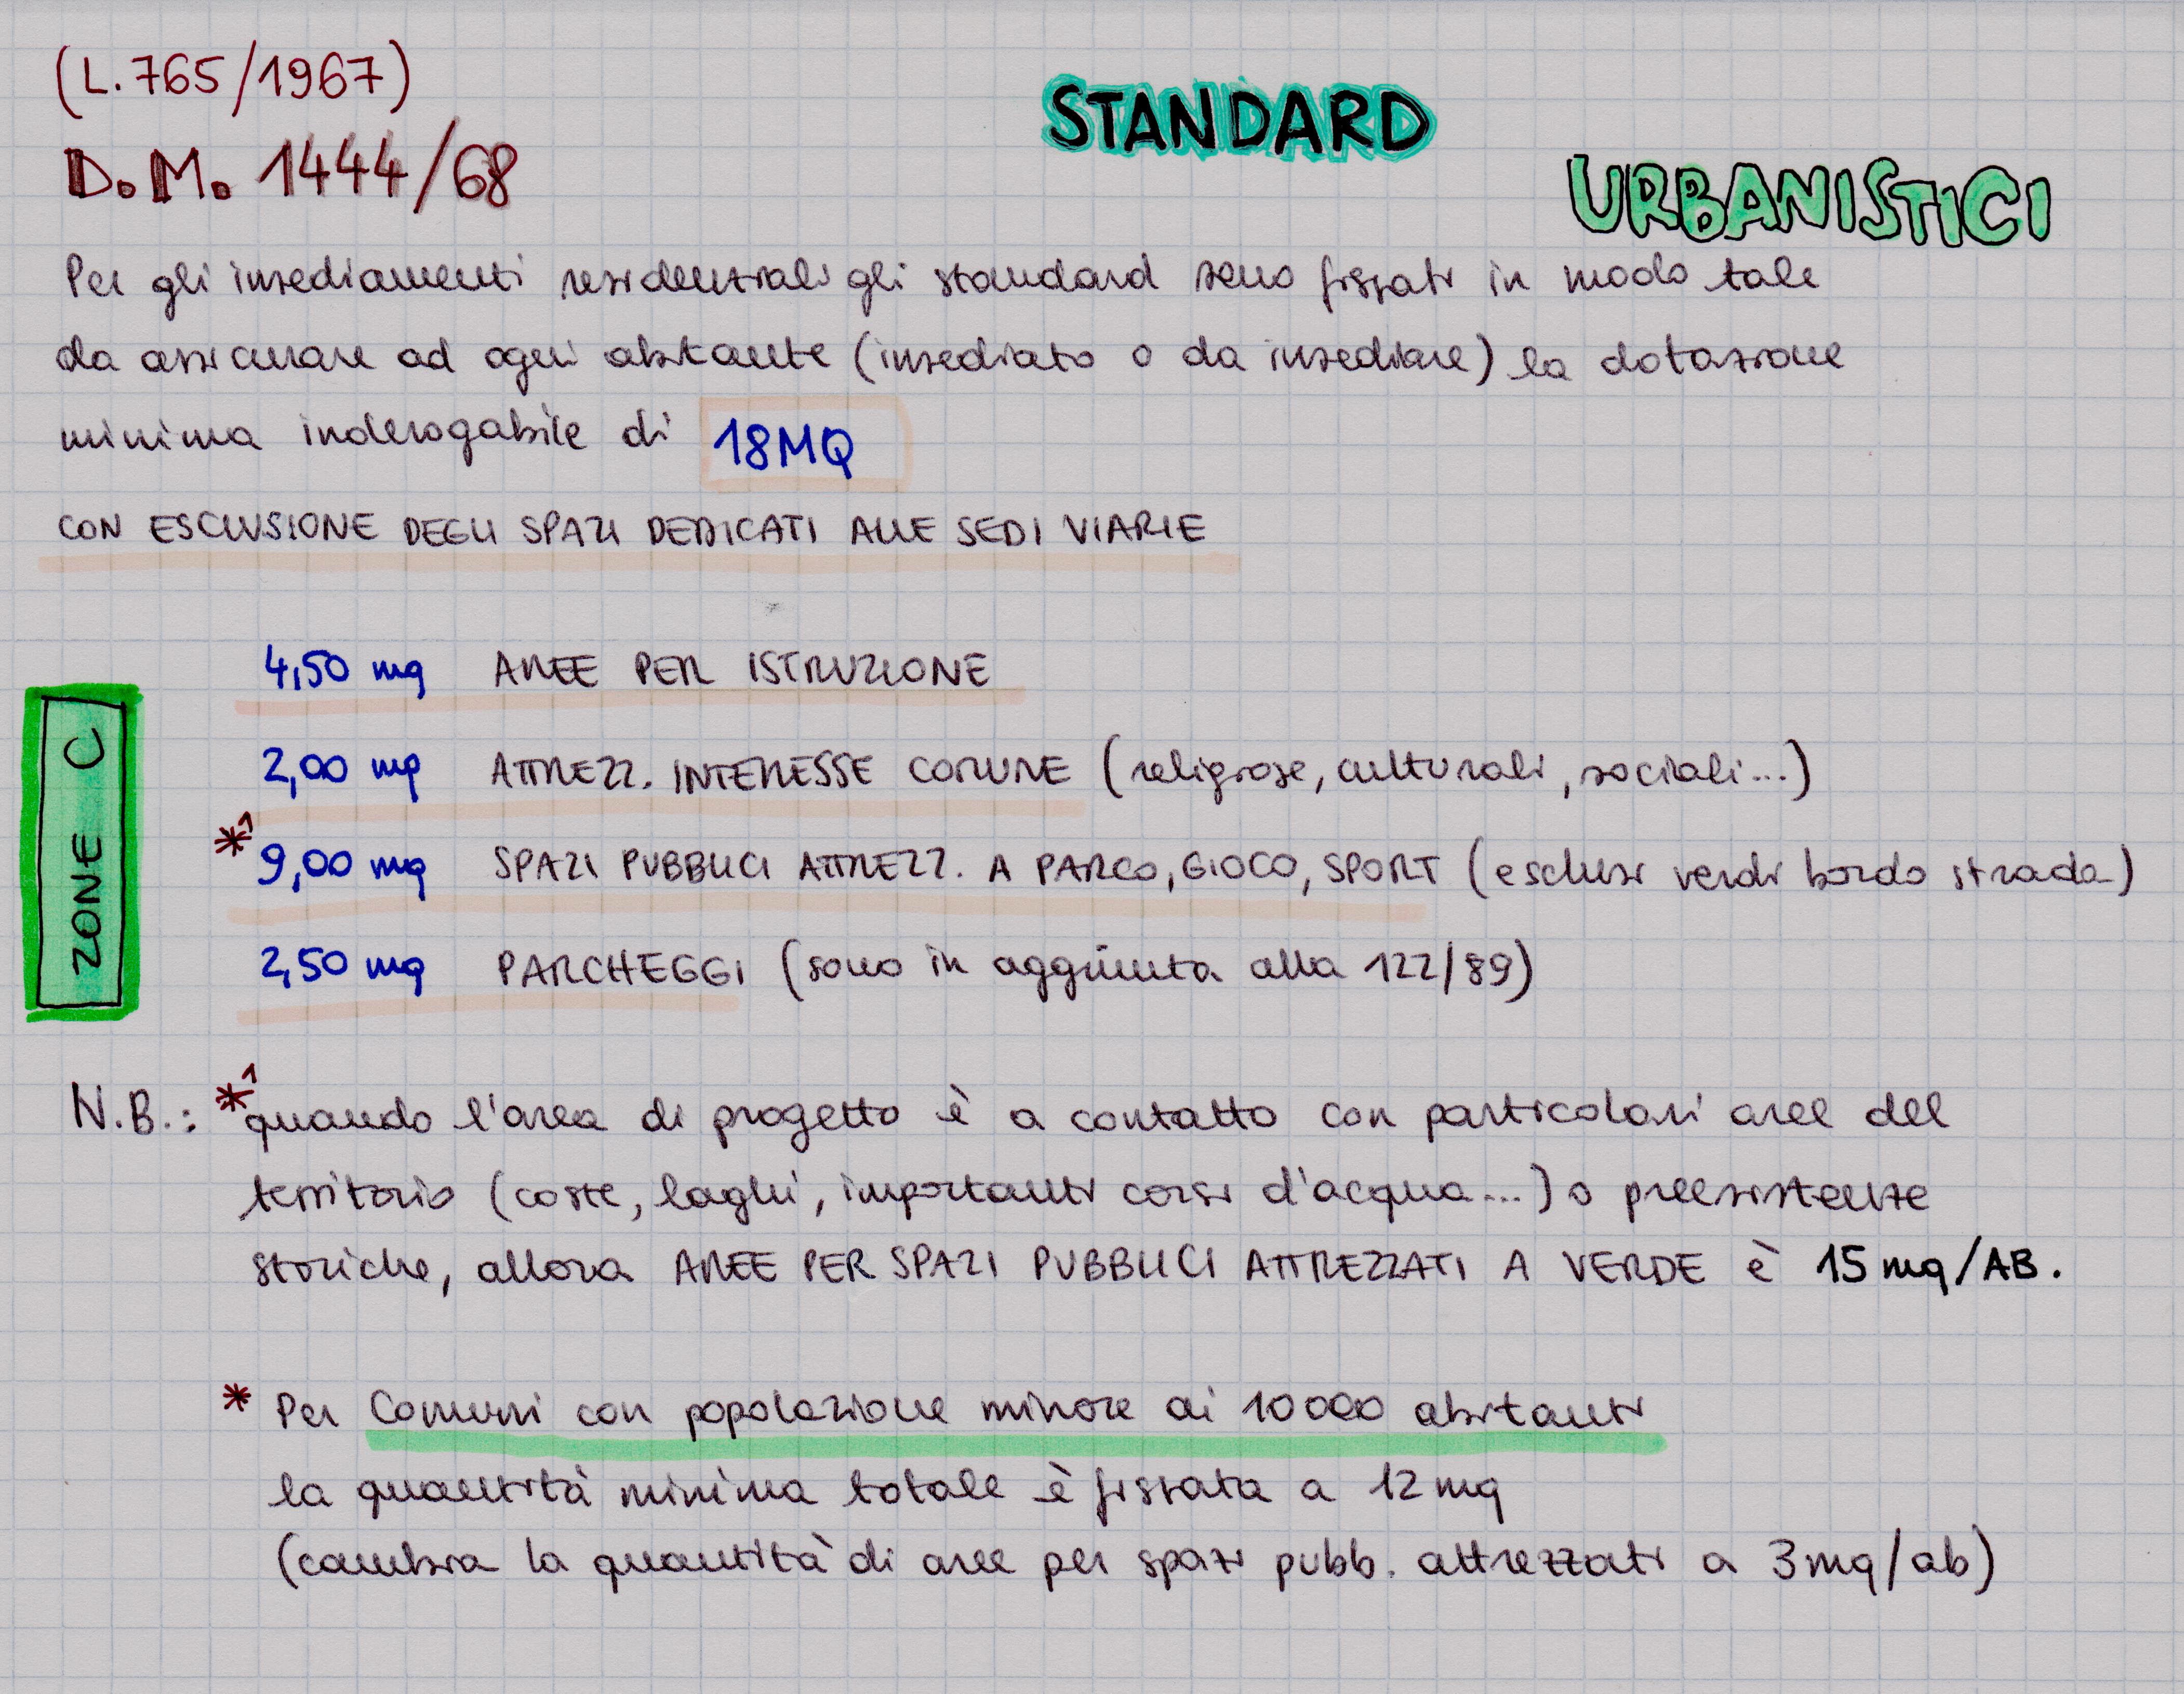 (L.765/1967)
STANDARD
D.M. 1444/68
URBANISTICI
Per gli insediamenti residenziali gli standard sono fissati in modo tale
da assicurare ad ogni abitante (insediato o da insediare) la dotazione
minima inderogabile di 18MQ
CON ESCLUSIONE DEGLI SPAZI DEDICATI ALLE SEDI VIARIE
ZONE C
4,50 mq AREE PER ISTRUZIONE
2,00 mq ATTREZZ. INTERESSE COMUNE (religiose, culturali, sociali...)
*1 9,00 mq SPAZI PUBBLICI ATTREZZ. A PARCO, GIOCO, SPORT (esclusi verdi bordo strada)
2,50 mq PARCHEGGI (sono in aggiunta alla 122/89)
N.B.: *1 quando l'area di progetto è a contatto con particolari aree del
territorio (coste, laghi, importanti corsi d'acqua...) o preesistenze
storiche, allora AREE PER SPAZI PUBBLICI ATTREZZATI A VERDE è 15 mq/AB.
* Per Comuni con popolazione minore ai 10000 abitanti
la quantità minima totale è fissata a 12 mq
(cambia la quantità di aree per spazi pubb. attrezzati a 3 mq/ab)